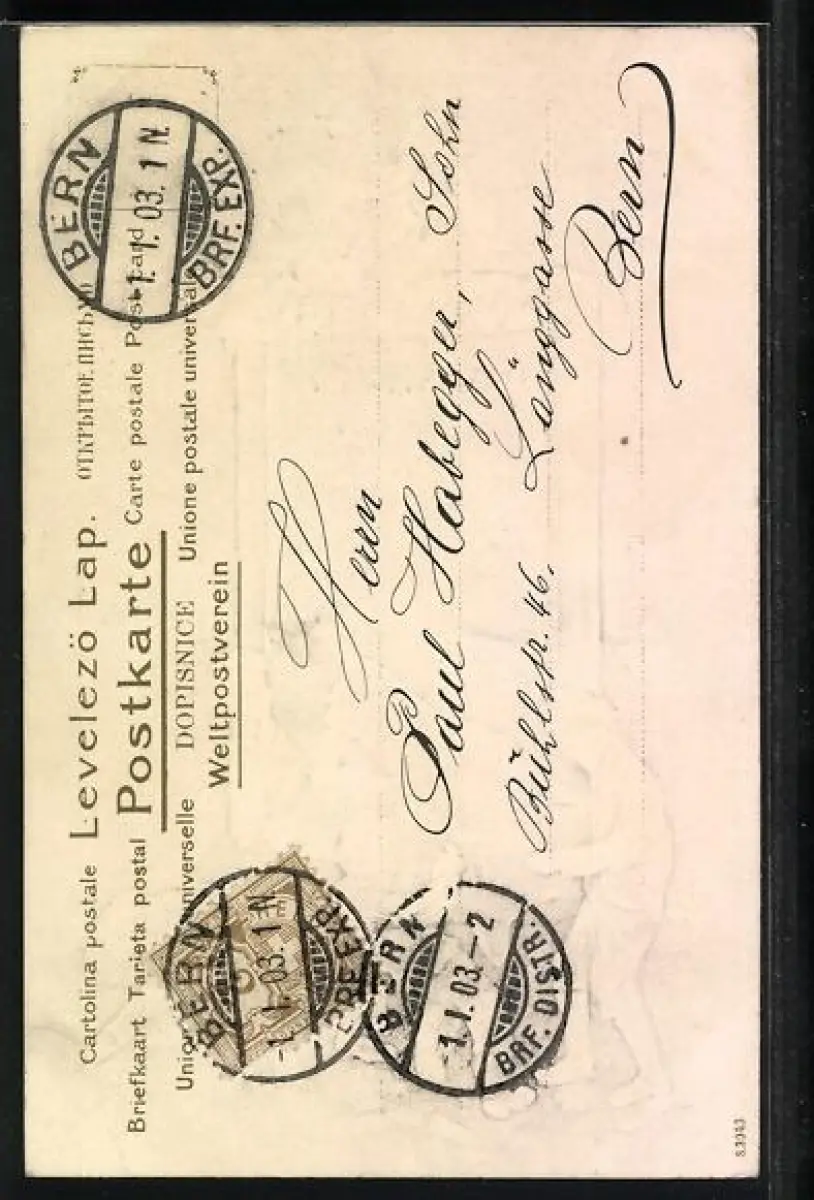 Cartolina postale Levelezö Lap. ОТКРЫТОЕ ПИСЬМО
Briefkaart Tarjeta postal Postkarte Carte postale Post card
Union niverselle DOPISNICE Unione postale universale
Weltpostverein
BERN
1. 1. 03. 1 N.
BRF. EXP.
BERN
-1. 1. 03. 1 N.
BRF. EXP.
BERN
-1. 1. 03. - 2
BRF. DISTR.
Herrn
Paul Habegger, Sohn
Bühlstr. 46. Länggasse
Bern
S. 3043